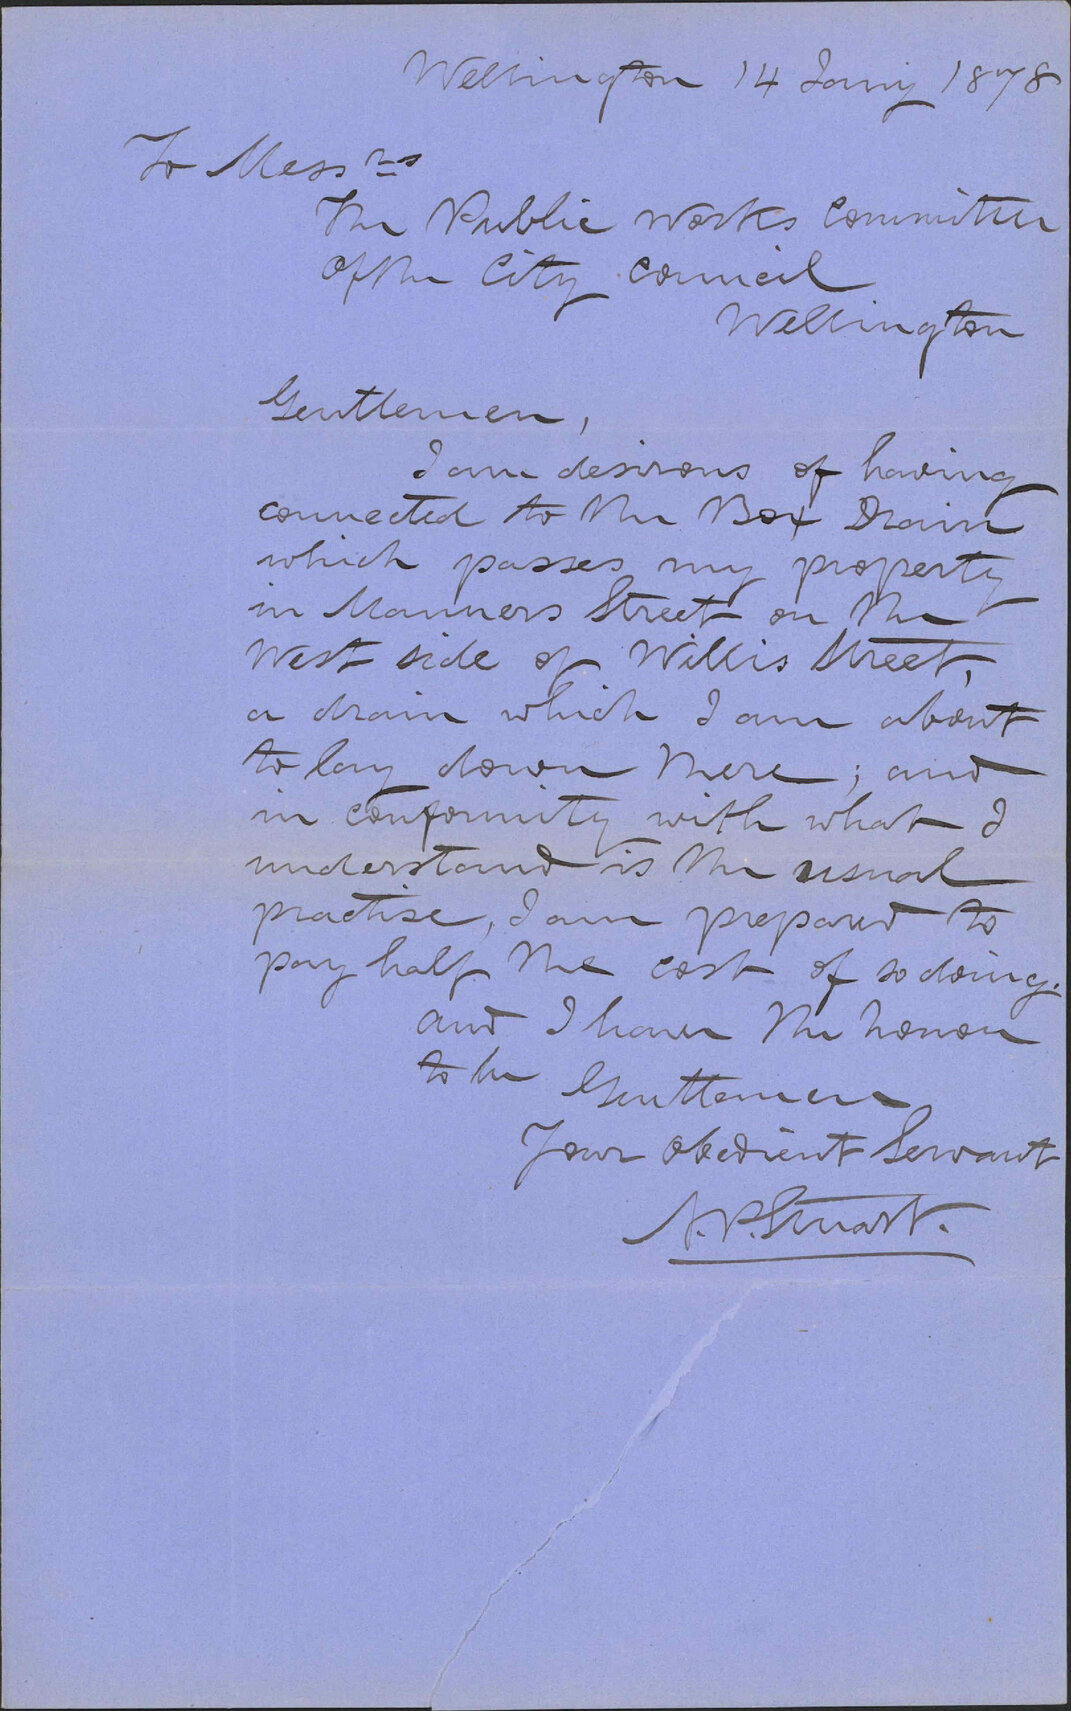 Wellington 14 Jany 1878
To Messrs
The Public Works Committee
of the City Council
Wellington
Gentlemen,
I am desirous of having
connected to the Box Drain
which passes my property
in Manners Street on the
West side of Willis Street,
a drain which I am about
to lay down there; and
in conformity with what I
understand is the usual
practise, I am prepared to
pay half the cost of so doing.
and I have the honor
to be
Gentlemen
Your obedient Servant
A.P. Stuart.